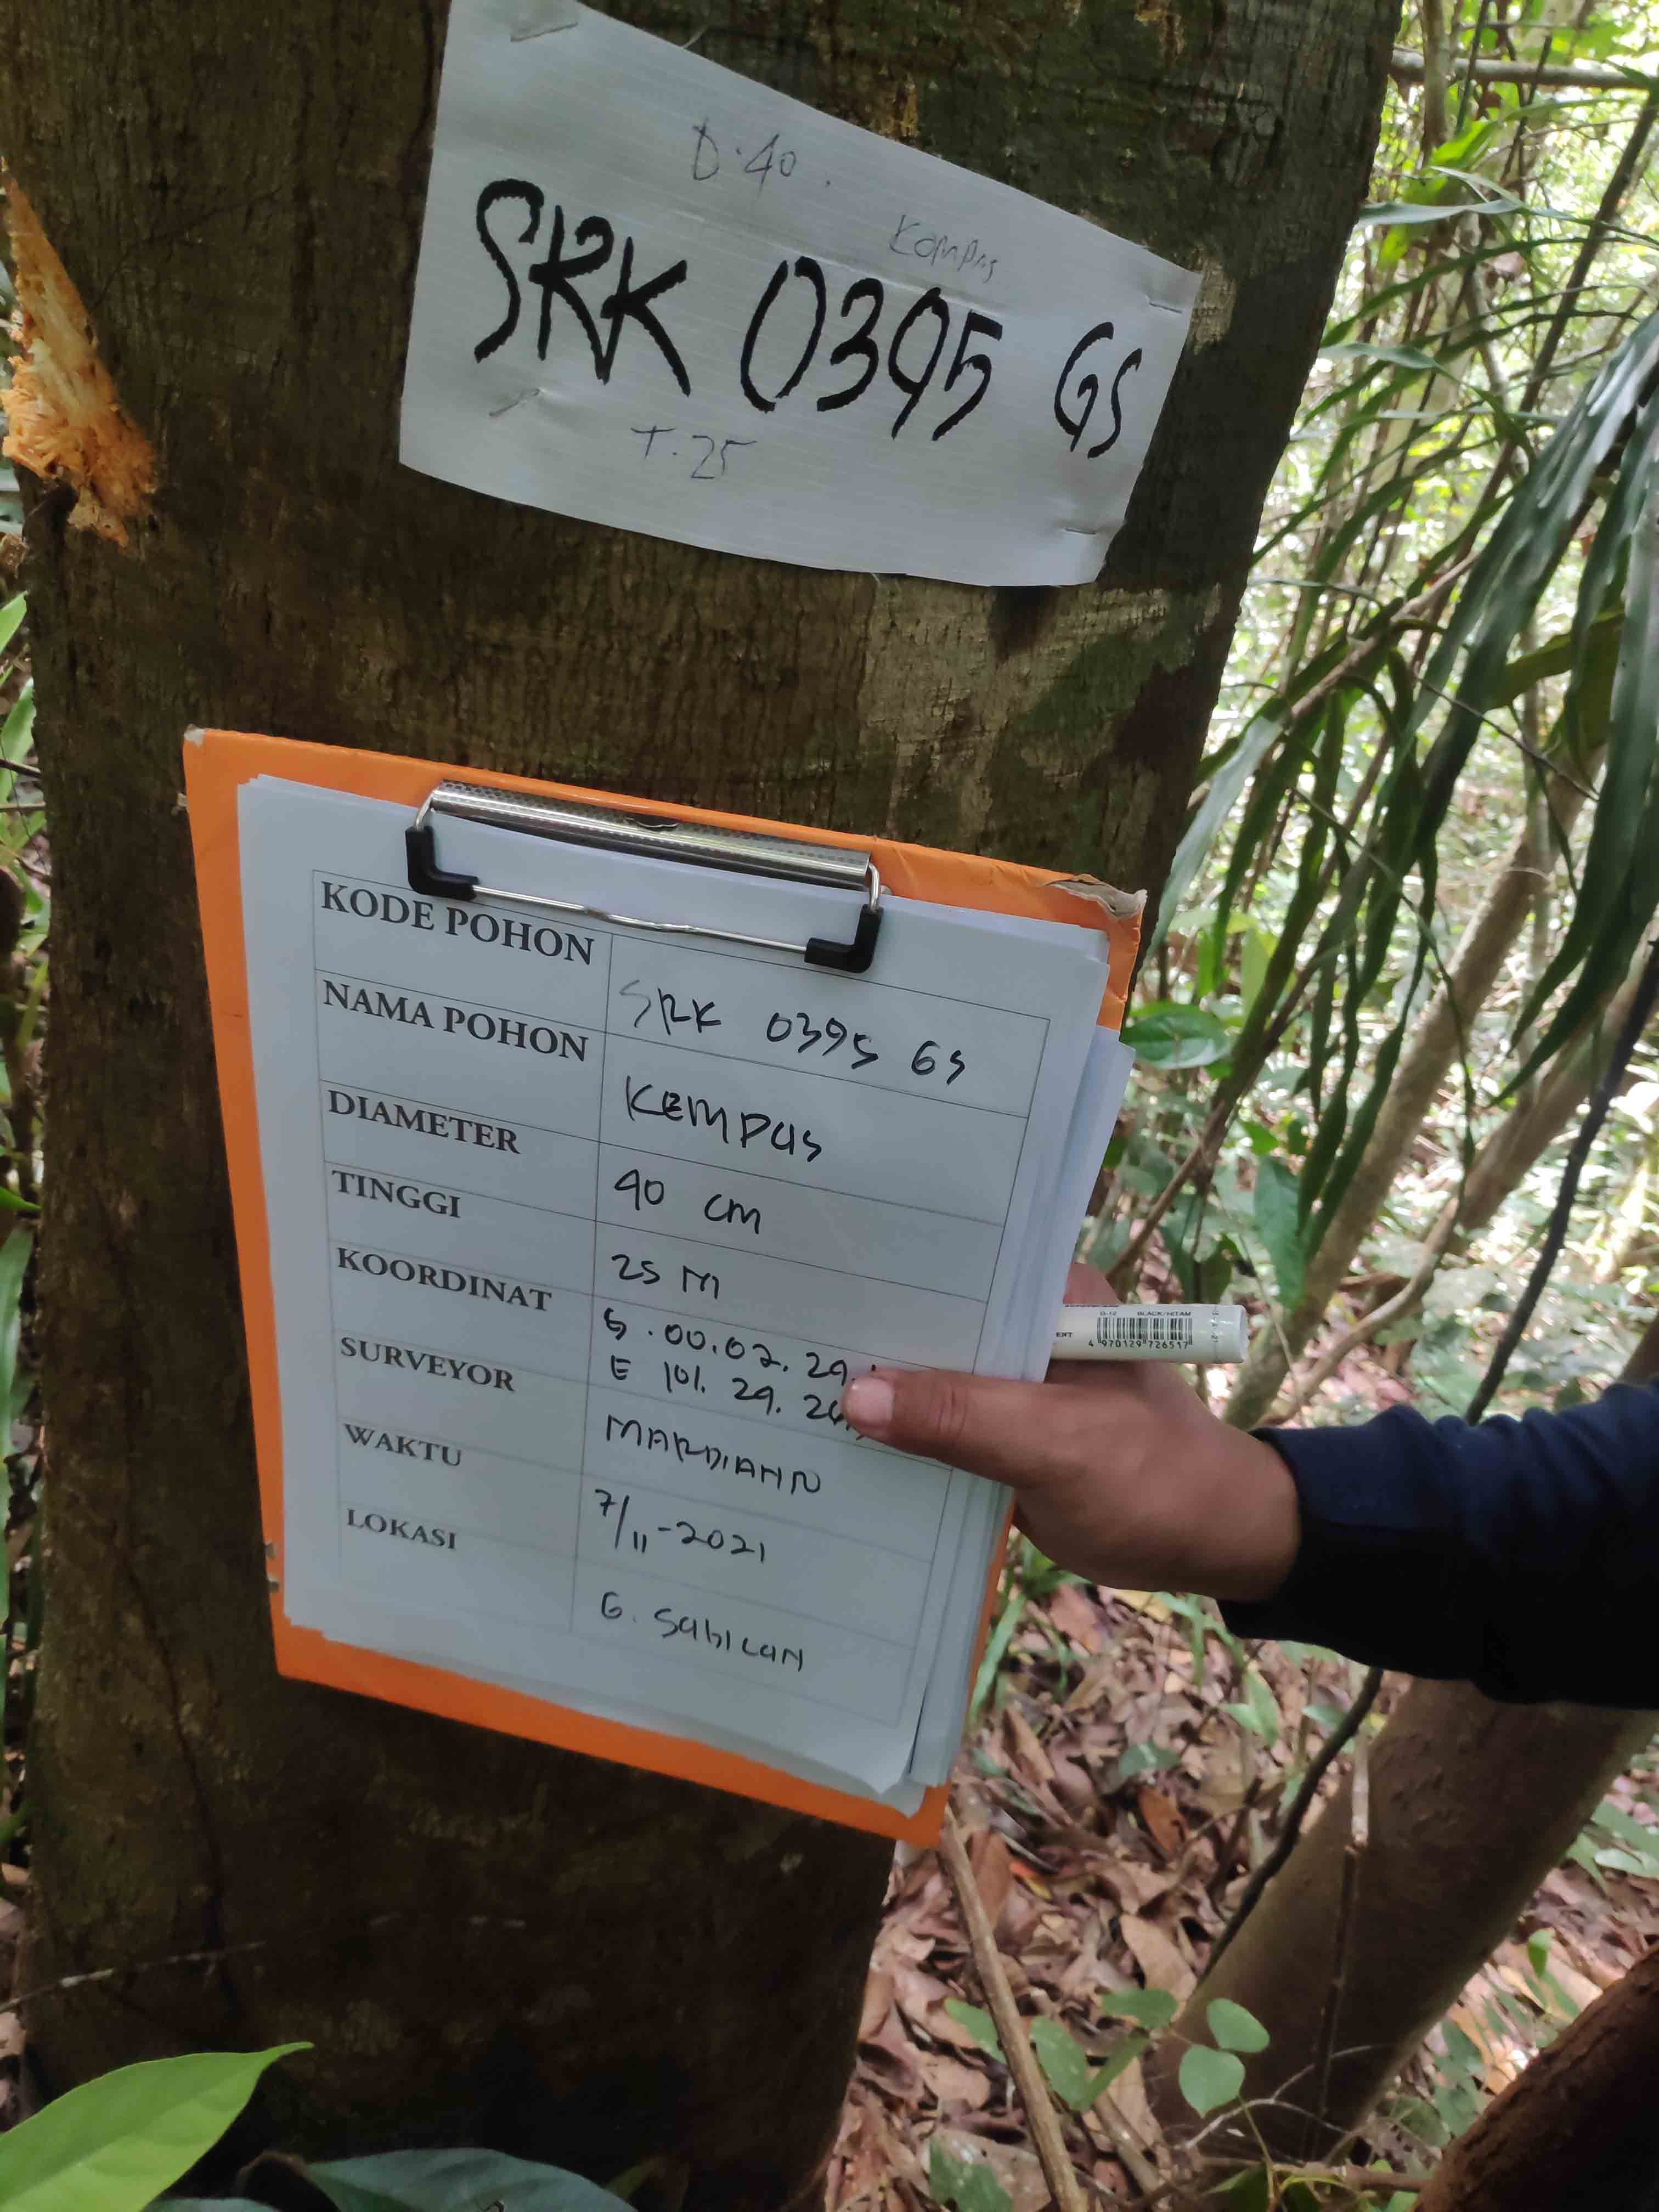 D.40.
Kompas
SRK 0395 GS
T.25
KODE POHON SRK 0395 GS
NAMA POHON KEMPAS
DIAMETER 40 CM
TINGGI 25 M
KOORDINAT S.00.02.29.
E 101.29.26
SURVEYOR MARDIAHN
WAKTU 7/11-2021
LOKASI G. Sabican
BLACK/HITAM
4 970129 726517